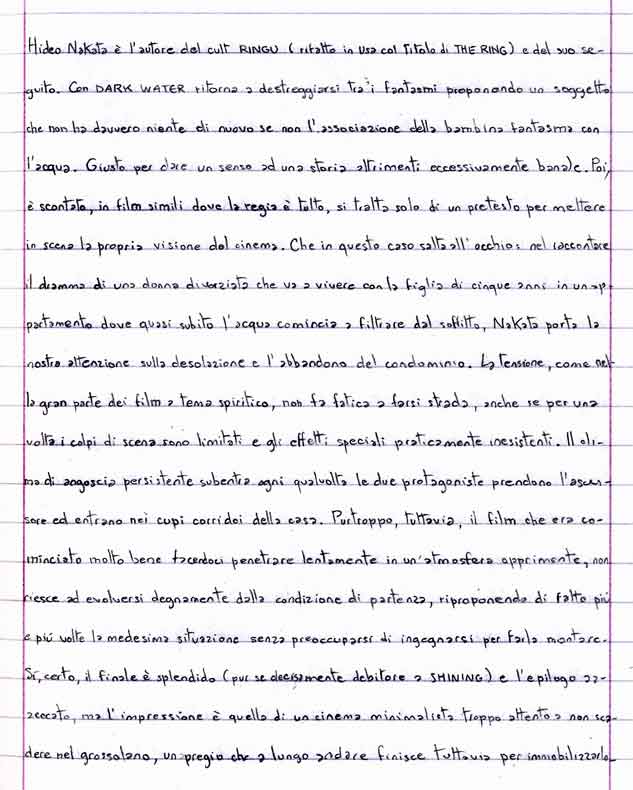 Hideo Nakata è l'autore del cult RINGU (rifatto in Usa col titolo di THE RING) e del suo se-
guito. Con DARK WATER ritorna a destreggiarsi tra i fantasmi proponendo un soggetto
che non ha davvero niente di nuovo se non l'associazione della bambina fantasma con
l'acqua. Giusto per dare un senso ad una storia altrimenti eccessivamente banale. Poi,
è scontato, in film simili dove la regia è tutto, si tratta solo di un pretesto per mettere
in scena la propria visione del cinema. Che in questo caso salta all'occhio: nel raccontare
il dramma di una donna divorziata che va a vivere con la figlia di cinque anni in un ap-
partamento dove quasi subito l'acqua comincia a filtrare dal soffitto, Nakata porta la
nostra attenzione sulla desolazione e l'abbandono del condominio. La tensione, come nel-
la gran parte dei film a tema spiritico, non fa fatica a farsi strada, anche se per una
volta i colpi di scena sono limitati e gli effetti speciali praticamente inesistenti. Il cli-
ma di angoscia persistente subentra ogni qualvolta le due protagoniste prendono l'ascen-
sore ed entrano nei cupi corridoi della casa. Purtroppo, tuttavia, il film che era co-
minciato molto bene facendoci penetrare lentamente in un'atmosfera opprimente, non
riesce ad evolversi degnamente dalla condizione di partenza, riproponendo di fatto più
e più volte la medesima situazione senza preoccuparsi di ingegnarsi per farla montare.
Sì, certo, il finale è splendido (pur se decisamente debitore a SHINING) e l'epilogo az-
zeccato, ma l'impressione è quella di un cinema minimalista troppo attento a non sca-
dere nel grossolano, un pregio che a lungo andare finisce tuttavia per immobilizzarlo.